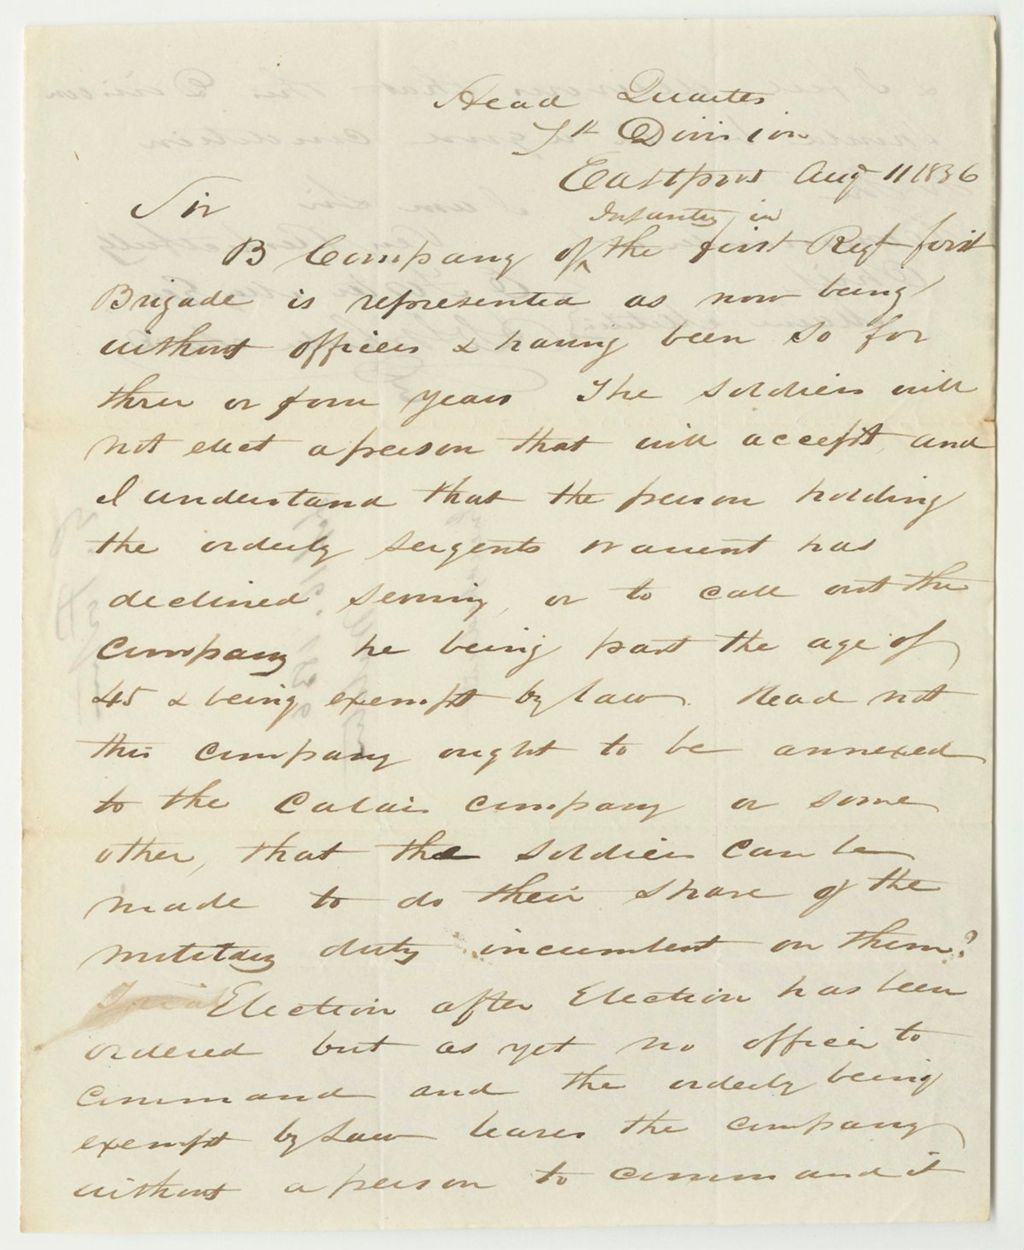 Head Quarters
7th Division
Eastport Augt 11 1836
Sir
Infantry in
B Company of ^ the first Regt first
Brigade is represented as now being
without officers & having been so for
three or four years The soldiers will
not elect a person that will accept, and
I understand that the person holding
the orderly sergents warrent has
declined serving, or to call out the
company he being past the age of
45 & being exempt by law. Had not
this company ought to be annexed
to the Calais company or some
other, that the soldiers can be
made to do their share of the
military duty incumbent on them?
Election after Election has been
ordered but as yet no officer to
command and the orderly being
exempt by law leaves the company
without a person to command it